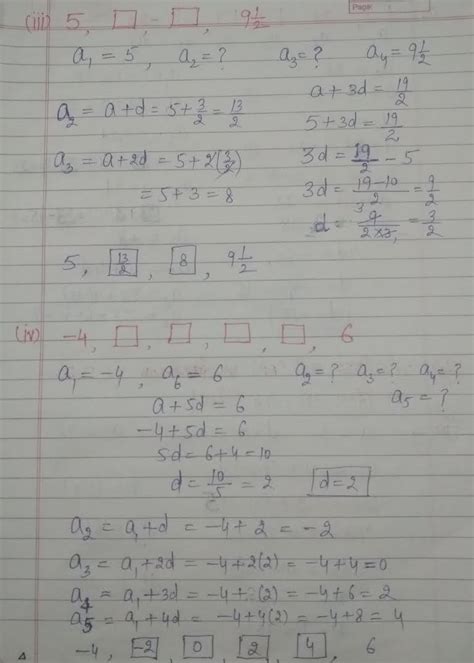 Page:
(iii) 5, □, □, 9 1/2
a₁ = 5, a₂ = ? a₃ = ? a₄ = 9 1/2
a + 3d = 19/2
a₂ = a + d = 5 + 3/2 = 13/2
5 + 3d = 19/2
a₃ = a + 2d = 5 + 2(3/2)
3d = 19/2 - 5
= 5 + 3 = 8
3d = 19-10/2 = 9/2
d = 9/2×3 = 3/2
5, 13/2, 8, 9 1/2
(iv) -4, □, □, □, □, 6
a₁ = -4, a₆ = 6 a₂ = ? a₃ = ? a₄ = ?
a₅ = ?
a + 5d = 6
-4 + 5d = 6
5d = 6 + 4 = 10
d = 10/5 = 2 d = 2
a₂ = a₁ + d = -4 + 2 = -2
a₃ = a₁ + 2d = -4 + 2(2) = -4 + 4 = 0
a₄ = a₁ + 3d = -4 + 3(2) = -4 + 6 = 2
a₅ = a₁ + 4d = -4 + 4(2) = -4 + 8 = 4
-4, -2, 0, 2, 4, 6